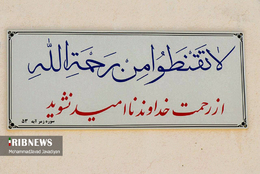 لا تَقنَطُوا مِن رَحمَةِ اللهِ
از رحمت خداوند ناامید نشوید
سوره زمر آیه ۵۳
IRIBNEWS
MohammadJavad Javadiyan